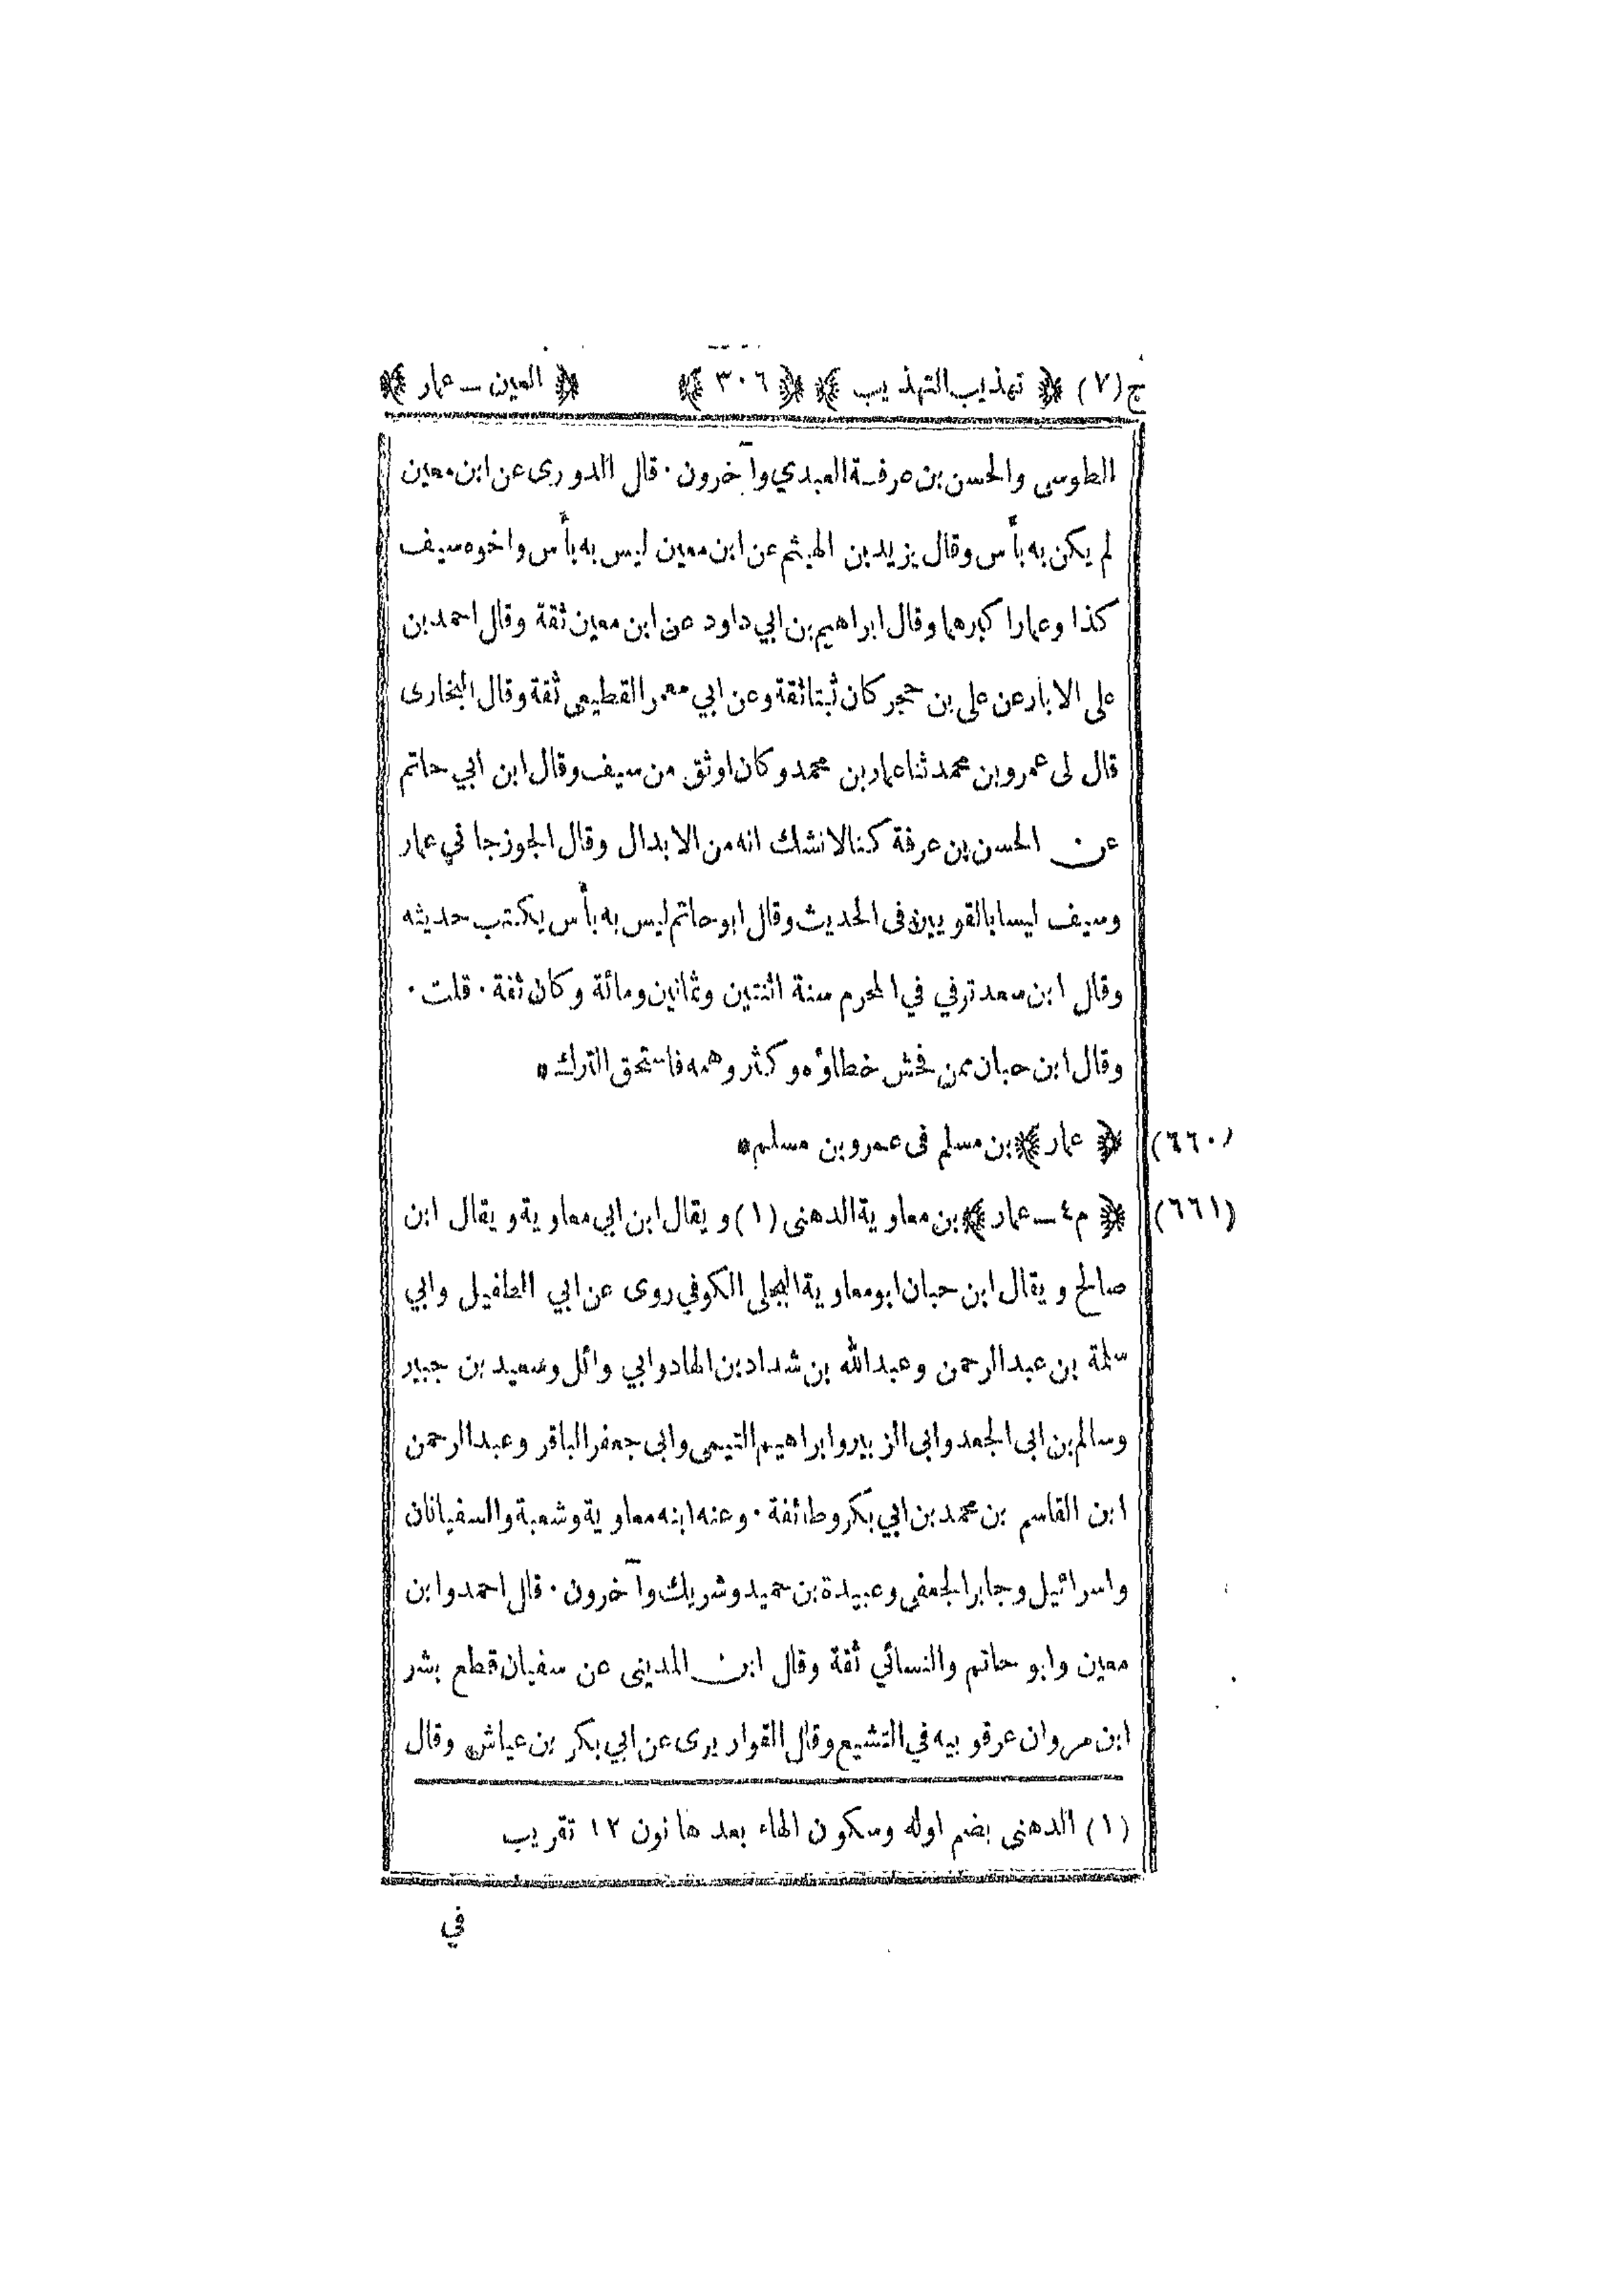 ج(٧) ﴿ تهذيب التهذيب ﴾ ﴿ ٣٠٦ ﴾ ﴿ العين ــ عمار ﴾
الطوسى والحسن بن عرفة العبدي وآخرون ٠ قال الدورى عن ابن معين
لم يكن به بأس وقال يزيد بن الهيثم عن ابن معين ليس به بأس واخوه سيف
كذا وعمار اكبرهما وقال ابراهيم بن ابي داود عن ابن معين ثقة وقال احمد بن
على الابار عن على بن حجر كان ثبتا ثقة وعن ابي معمر القطيعى ثقة وقال البخارى
قال لى عمرو بن محمد ثنا عمار بن محمد وكان اوثق من سيف وقال ابن ابي حاتم
عن الحسن بن عرفة كنا لا نشك انه من الابدال وقال الجوزجاني عمار
وسيف ليسا بالقويين فى الحديث وقال ابو حاتم ليس به بأس يكتب حديثه
وقال ابن سعد توفي في المحرم سنة اثنتين وثمانين ومائة وكان ثقة ٠ قلت ٠
وقال ابن حبان ممن فحش خطاؤه وكثر وهمه فاستحق الترك *
(٦٦٠) ﴿ عمار ﴾ بن مسلم فى عمرو بن مسلم *
(٦٦١) ﴿ م٤ ــ عمار ﴾ بن معاوية الدهنى (١) ويقال ابن ابي معاوية ويقال ابن
صالح ويقال ابن حبان ابو معاوية البجلى الكوفي روى عن ابي الطفيل وابي
سلمة بن عبد الرحمن وعبد الله بن شداد بن الهاد وابي وائل وسعيد بن جبير
وسالم بن ابى الجعد وابى الزبير وابراهيم التيمى وابى جعفر الباقر وعبد الرحمن
ابن القاسم بن محمد بن ابي بكر وطائفة ٠ وعنه ابنه معاوية وشعبة والسفيانان
واسرائيل وجابر الجعفى وعبيدة بن حميد وشريك وآخرون ٠ قال احمد وابن
معين وابو حاتم والنسائي ثقة وقال ابن المدينى عن سفيان قطع بشر
ابن مروان عرقوبيه في التشيع وقال القواريرى عن ابي بكر بن عياش وقال
(١) الدهنى بضم اوله وسكون الهاء بعدها نون ١٢ تقريب
في